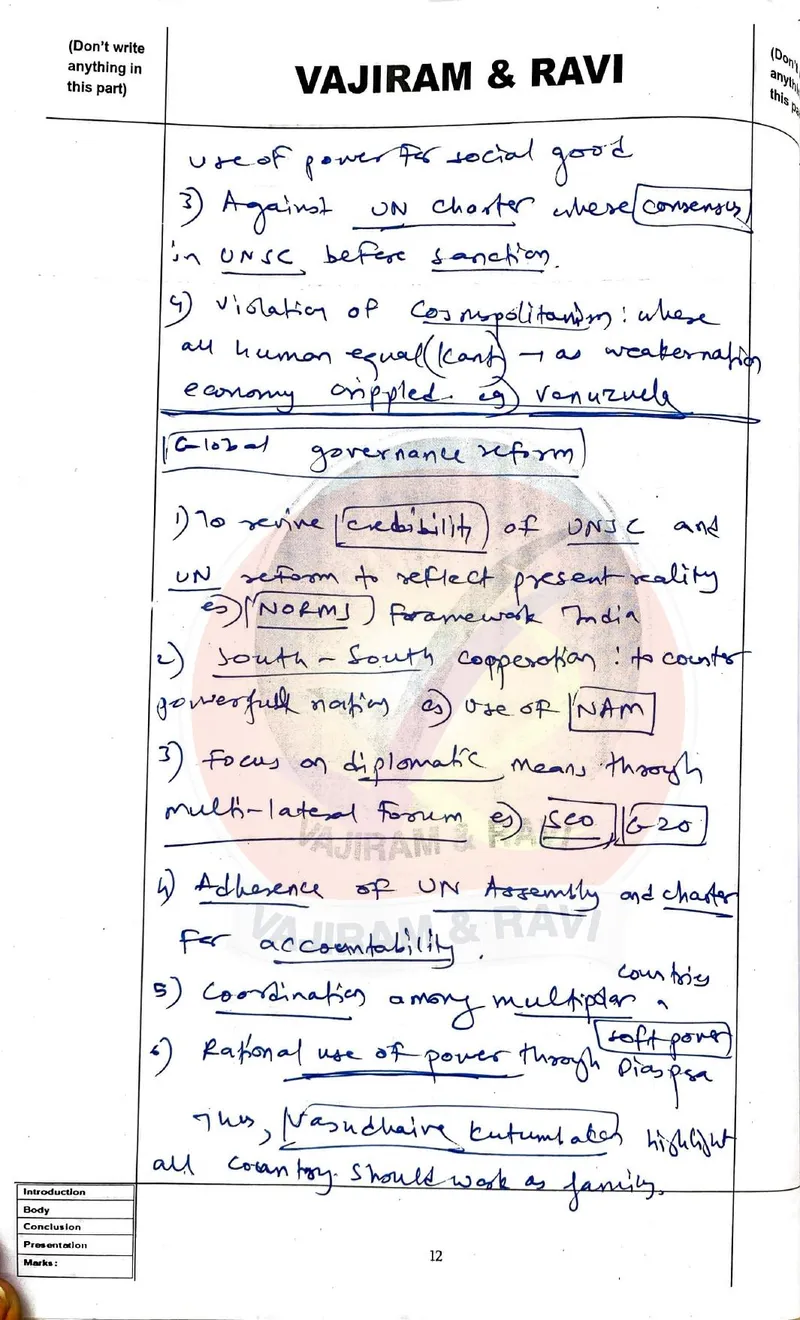 (Don't write
anything in
this part)
VAJIRAM & RAVI
(Don't
anythi
this pa
use of power for social good
3) Against UN Charter where consensus
in UNSC before sanction.
4) Violation of Cosmopolitanism : where
all human equal (Kant) → as weaker nation
economy crippled. eg) Venuzuela
Global governance reform
1) To revive credibility of UNSC and
UN reform to reflect present reality
eg) NORMS framework India
2) South-South copperation : to counter
powerfull nations eg) use of NAM
3) Focus on diplomatic means through
multi-lateral forum eg) SCO, G-20
VAJIRAM & RAVI
4) Adherence of UN Assembly and charter
VAJIRAM & RAVI
for accountability.
5) Coordination among multipolar countries
6) Rational use of power through soft power Diaspora
Thus, Vasudhaiva Kutumbakam highlight
all country should work as family.
Introduction
Body
Conclusion
Presentation
Marks:
12